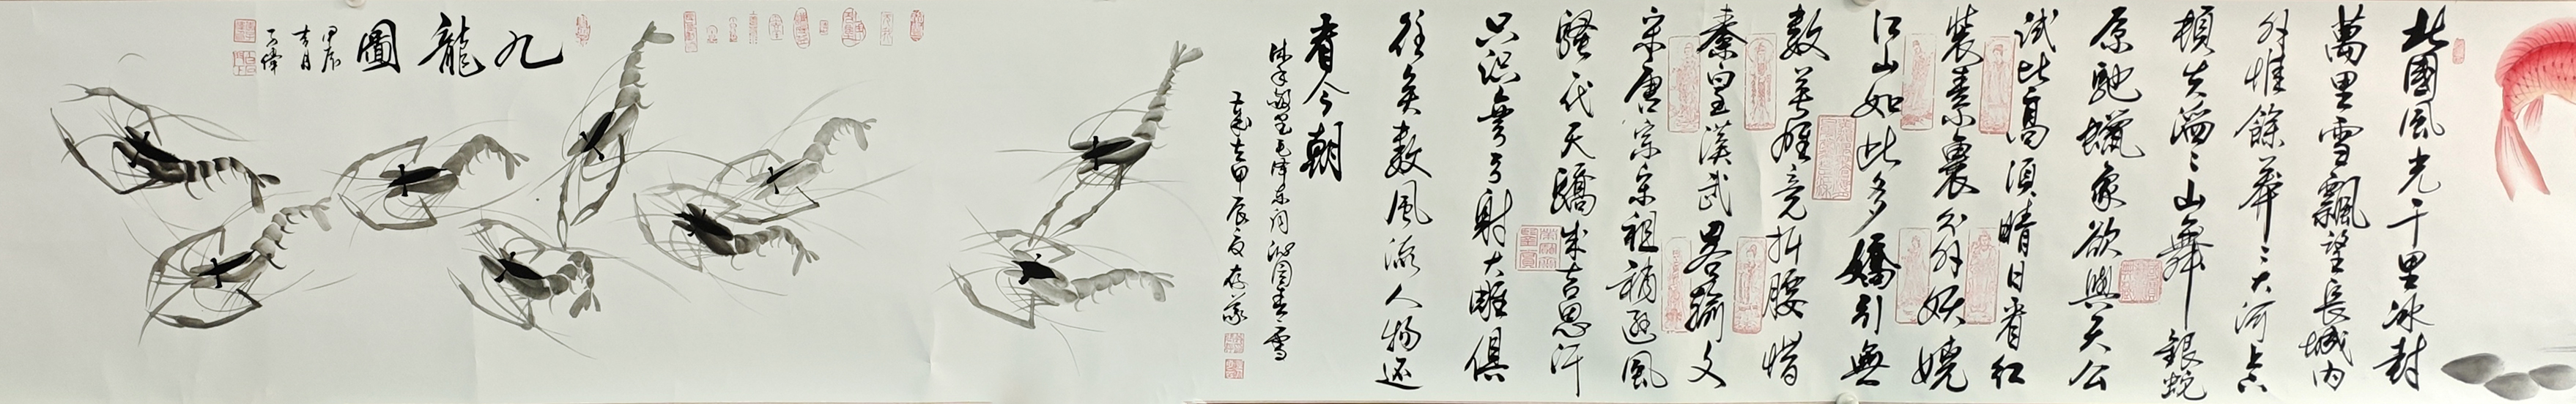 北國風光千里冰封
萬里雪飄望長城內
外惟餘莽〻大河上下
頓失滔〻山舞銀蛇
原馳蠟象欲與天公
試比高須晴日看紅
裝素裹分外妖嬈
江山如此多嬌引無
數英雄竞折腰惜
秦皇漢武略輸文
采唐宗宋祖稍遜風
騷一代天驕成吉思汗
只识彎弓射大雕俱
往矣數風流人物还
看今朝
毛泽东詞沁園春雪
歲在甲辰夏
九龍圖
甲辰